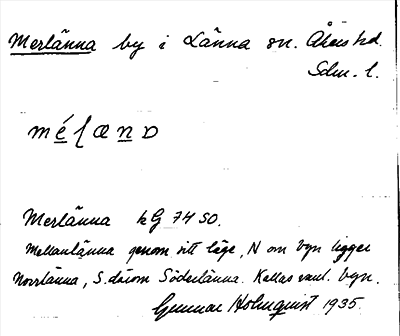 Merlänna by i Länna sn. Åkers hd.
Sdm. l.
Merlänna kG 74 SO.
Mellanlänna genom sitt läge, N om byn ligger
Norrlänna, S. därom Söderlänna. Kallas vanl. byn.
Gunnar Holmquist 1935.